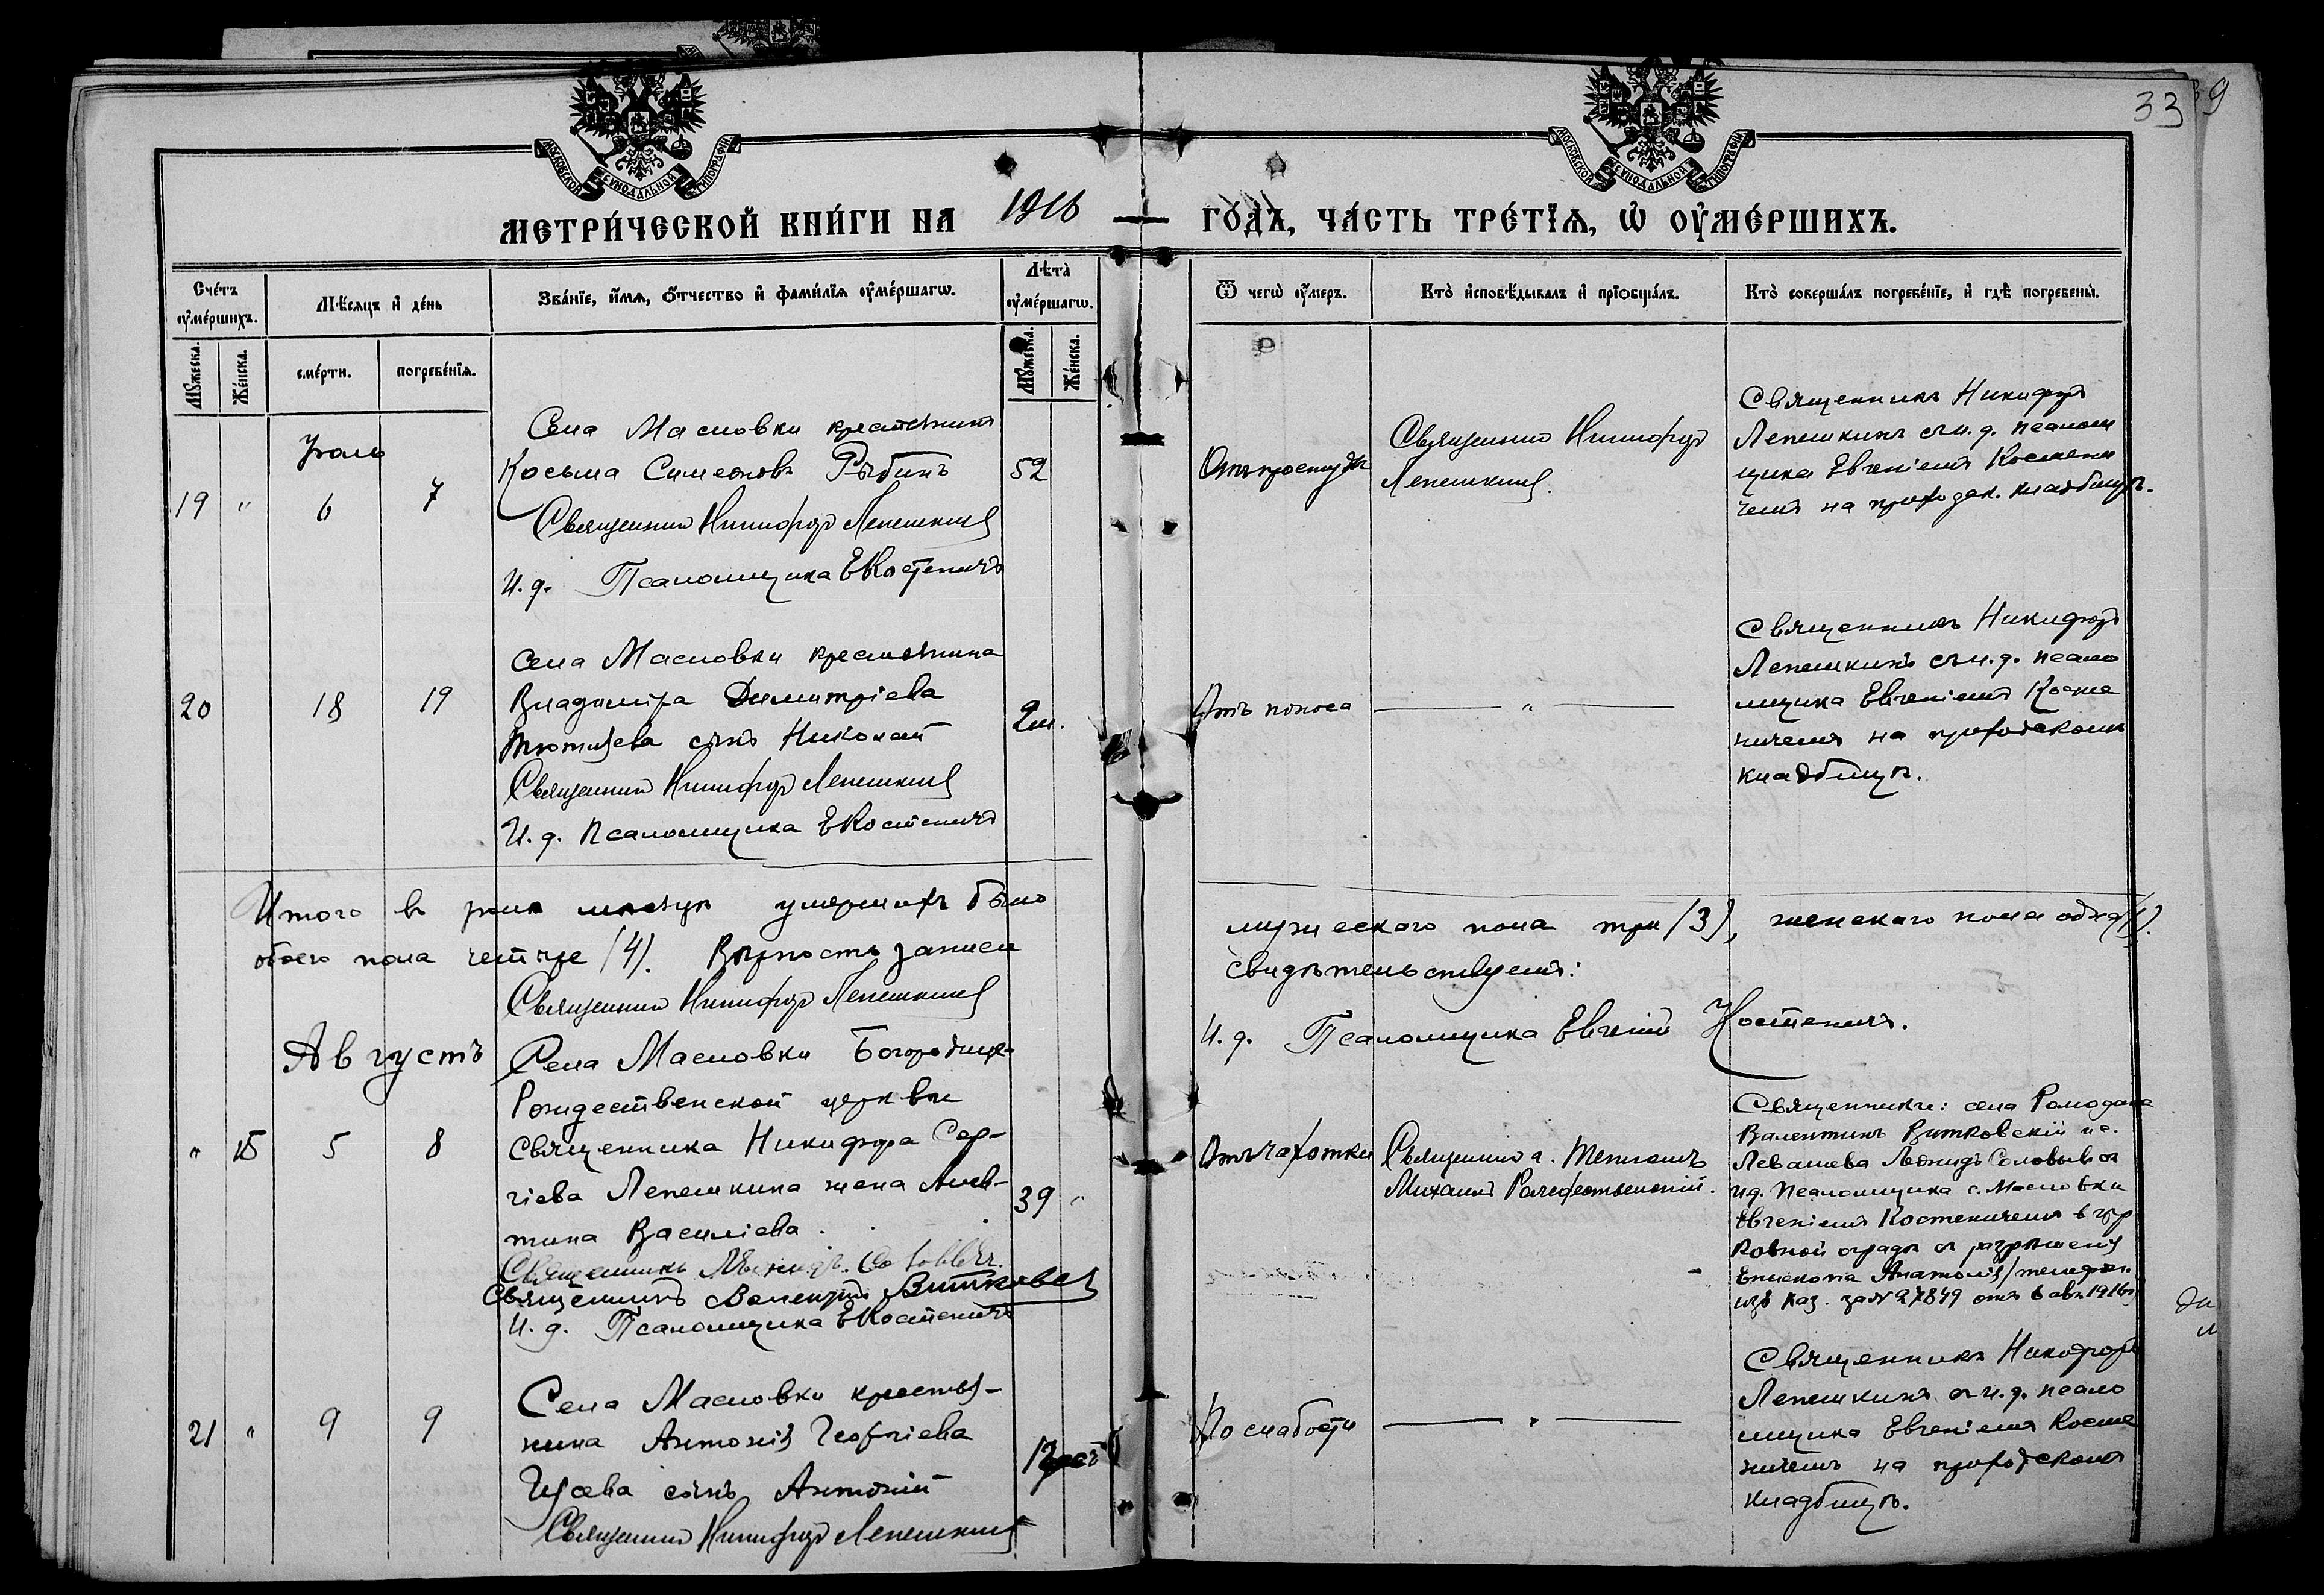 33
9
МОСКОВСКОЙ СѴНОДАЛЬНОЙ ТИПОГРАФІИ
МОСКОВСКОЙ СѴНОДАЛЬНОЙ ТИПОГРАФІИ
МЕТРИ́ЧЕСКОЙ КНИ́ГИ НА 1916 ГО́ДЪ, ЧА́СТЬ ТРЕ́ТЇѦ, Ѽ ОУ҆МЕ́РШИХЪ.
Сче́тъ оу҆ме́ршихъ.
Мꙋ́жеска.
Же́нска.
Мѣ́сяцъ и҆ де́нь
сме́рти.
погребе́нїѧ.
Зва́нїе, и҆́мѧ, ѻ҆́тчество и҆ фами́лїѧ оу҆ме́ршагѡ.
Лѣ́та оу҆ме́ршагѡ.
Мꙋ́жеска.
Же́нска.
Ѿ чегѡ̀ оу҆́меръ.
Кто̀ и҆сповѣ́дывалъ и҆ прїѡбща́лъ.
Кто̀ соверша́лъ погребе́нїе, и҆ гдѣ̀ погребены̀.
Іюль
19 " 6 7
Села Масловки крестьянинъ
Косьма Симеоновъ Рябинъ
52
Священникъ Никифоръ Лепешкинъ
И. д. Псаломщика Е Костеничъ
Отъ простуды
Священникъ Никифоръ
Лепешкинъ.
Священникъ Никифоръ
Лепешкинъ съ и. д. псалом
щика Евгеніемъ Костени
чемъ на приходск. кладбищѣ.
20 18 19
Села Масловки крестьянина
Владиміра Димитріева
сынъ Николай
2 м.
Священникъ Никифоръ Лепешкинъ
И. д. Псаломщика Е Костеничъ
Отъ поноса
"
Священникъ Никифоръ
Лепешкинъ съ и. д. псало
мщика Евгеніемъ Косте
ничемъ на приходскомъ
кладбищѣ.
Итого въ іюлѣ мѣсяцѣ умершихъ было мужескаго пола три (3), женскаго пола одна (1).
обоего пола четыре (4). Вѣрность записи свидѣтельствуемъ:
Священникъ Никифоръ Лепешкинъ
И. д. Псаломщика Евгеній Костеничъ.
Августъ
" 15 5 8
Села Масловки Богородице-
Рождественской церкви
священника Никифора Сер-
гіева Лепешкина жена Алев-
тина Василіева.
39 "
Священникъ Леонидъ Соловьевъ.
Священникъ Валентинъ Витковскій
И. д. Псаломщика Е Костеничъ
Отъ чахотки
Священникъ с.
Михаилъ Рождественскій.
Священники: села Ромодана
Валентинъ Витковскій и с.
Левашева Леонидъ Соловьевъ съ
и д. псаломщика с. Масловки
Евгеніемъ Костеничемъ въ цер
ковной оградѣ съ разрѣшенія
Епископа Анатолія (телеграм.
изъ Каз. за № 27849 отъ 6 авг. 1916 г.
21 " 9 9
Села Масловки крестья-
нина Антонія Георгіева
Гусева сынъ Антоній
Священникъ Никифоръ Лепешкинъ
По слабости
"
Священникъ Никифоръ
Лепешкинъ съ и. д. псало
мщика Евгеніемъ Косте
ничемъ на приходскомъ
кладбищѣ.